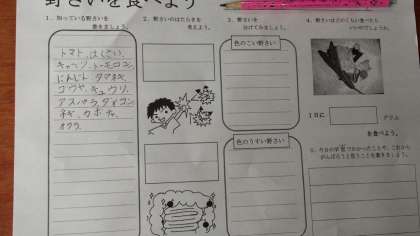 野さいを食べよう
1. 知っている野さいを書きましょう。
トマト, はくさい,
キャベツ, トーモロコシ,
にんじん, タマネギ,
ゴウヤ, キュウリ,
アスパラ, ダイコン,
ネギ, カボチャ,
オクラ,
2. 野さいのはたらきを考えよう。
3. 野さいを分けてみましょう。
色のこい野さい
色のうすい野さい
4. 野さいはどのくらい食べたらいいのでしょうか。
1日に
グラム
を食べよう。
5. 今日の学習でわかったことや、これからがんばろうと思うことを書きましょう。